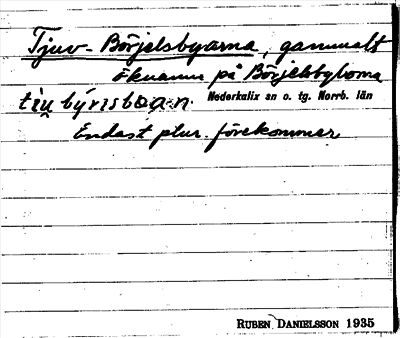 Tjuv-Börjelsbyarna, gammalt
öknamn på Börjelsbyborna
Nederkalix sn o. tg. Norrb. län
Endast plur. förekommer
RUBEN DANIELSSON 1935